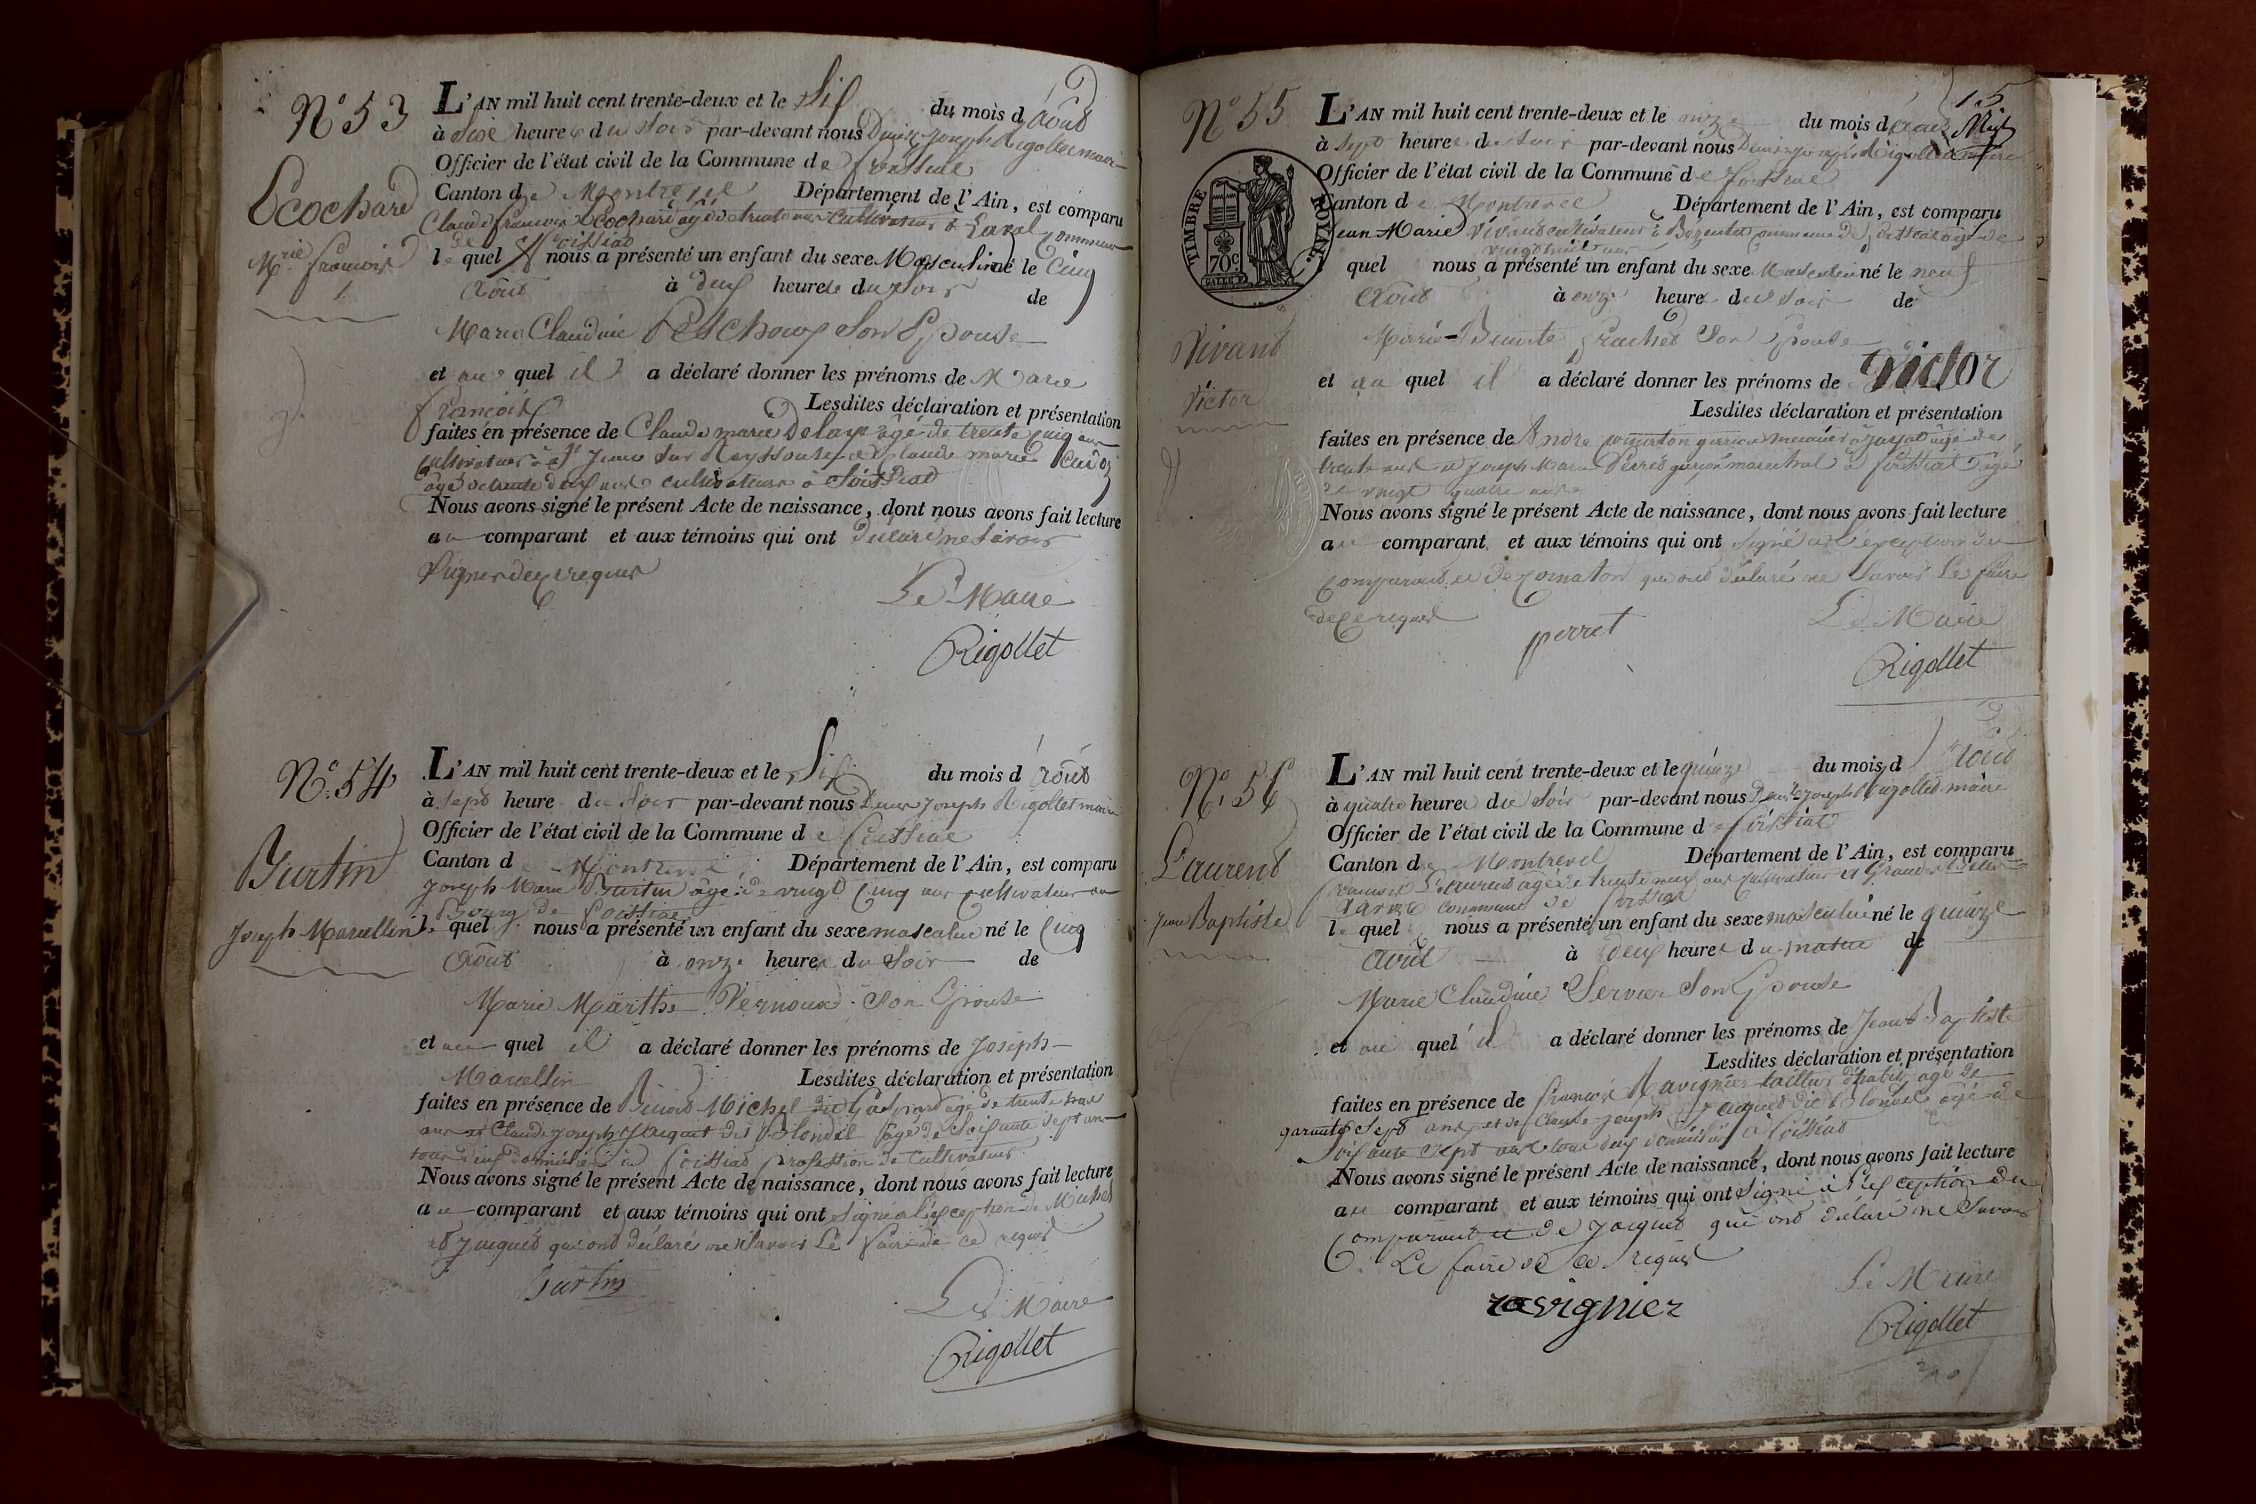 N° 53
Ecochard
Mrie françois
L'AN mil huit cent trente-deux et le Six du mois d'Août
à Sixe heures du Soir par-devant nous Denis Joseph Rigollet maire
Officier de l'état civil de la Commune de foissiat
Canton de Montrevel Département de l'Ain, est comparu
Claude françois Ecochard agé de trente cultivateur à Laval Commune
de foissiat
le quel nous a présenté un enfant du sexe Masculin né le Cinq
Août à deux heures du soir de
Marie Claudine Peschoux Son Epouse
et au quel il a déclaré donner les prénoms de Marie
françois Lesdites déclaration et présentation
faites en présence de Claude marie Delaye âgé de trente cinq ans
cultivateur à St Jean Sur Reyssouse et Claude marie
âgé de trente deux ans cultivateur à foissiat
Nous avons signé le présent Acte de naissance, dont nous avons fait lecture
au comparant et aux témoins qui ont déclaré ne Savoir
Signer de ce requis
Le Maire
Rigollet
N° 54
Burtin
Joseph Marcellin
L'AN mil huit cent trente-deux et le Six du mois d'Août
à Sept heure du Soir par-devant nous Denis Joseph Rigollet maire
Officier de l'état civil de la Commune de foissiat
Canton de Montrevel Département de l'Ain, est comparu
Joseph Marie Burtin âgé de vingt Cinq ans cultivateur au
Bourg de foissiat
le quel nous a présenté un enfant du sexe masculin né le Cinq
Août à onze heures du Soir de
Marie Marthe Vernoux Son Epouse
et au quel il a déclaré donner les prénoms de Joseph
Marcellin Lesdites déclaration et présentation
faites en présence de Benoit Michel dit Gaspard agé de trente
ans et Claude Joseph Jacquet dit Blondel agé de Soixante Sept ans
tous deux domiciliés à foissiat profession de cultivateur
Nous avons signé le présent Acte de naissance, dont nous avons fait lecture
au comparant et aux témoins qui ont signé à l'exception de Michel
et Jacquet qui ont déclaré ne Savoir Le faire de ce requis
Burtin
Le Maire
Rigollet
15
N° 55
TIMBRE ROYAL
70c
Vivant
Victor
L'AN mil huit cent trente-deux et le onze du mois d'Août
à Sept heures du Soir par-devant nous Denis Joseph Rigollet maire
Officier de l'état civil de la Commune de foissiat
Canton de Montrevel Département de l'Ain, est comparu
Jean Marie Vivant cultivateur à Commune de foissiat agé de
vingt huit ans
quel nous a présenté un enfant du sexe Masculin né le neuf
Août à onze heures du Soir de
Marie-Benoite Son Epouse
et au quel il a déclaré donner les prénoms de Victor
Lesdites déclaration et présentation
faites en présence de André garçon meunier à Jayat âgé de
trente ans et Joseph Marie Perret garçon marechal à foissiat agé
de vingt quatre ans
Nous avons signé le présent Acte de naissance, dont nous avons fait lecture
au comparant et aux témoins qui ont signé à l'exception du
comparant et de qui ont déclaré ne Savoir Le faire
de ce requis
perret
Le Maire
Rigollet
N° 56
Laurent
Jean Baptiste
L'AN mil huit cent trente-deux et le quinze du mois d'Août
à quatre heures du Soir par-devant nous Denis Joseph Rigollet maire
Officier de l'état civil de la Commune de foissiat
Canton de Montrevel Département de l'Ain, est comparu
françois Laurent agé de trente neuf ans cultivateur
commune de foissiat
le quel nous a présenté un enfant du sexe masculin né le quinze
Août à deux heures du matin de
Marie Claudine Servier Son Epouse
et au quel il a déclaré donner les prénoms de Jean Baptiste
Lesdites déclaration et présentation
faites en présence de francois Ravignier tailleur d'habits agé de
garante Sept ans et de Claude Joseph Jacquet dit blondel agé de
Soixante Sept ans tous deux domiciliés à foissiat
Nous avons signé le présent Acte de naissance, dont nous avons fait lecture
au comparant et aux témoins qui ont Signé à l'exception du
Comparant et de Jacquet qui ont déclaré ne Savoir
Le faire de ce requis
ravignier
Le Maire
Rigollet